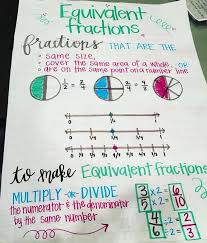 Equivalent
fractions
fractions THAT ARE THE
• same size,
• cover the same area of a whole, OR
• are on the same point on a number line
1/2 = 2/4
to make Equivalent fractions
MULTIPLY -OR- DIVIDE
the numerator & the denominator
by the same number
3 x 2 = 6
5 x 2 = 10
4 ÷ 2 = 2
6 ÷ 2 = 3